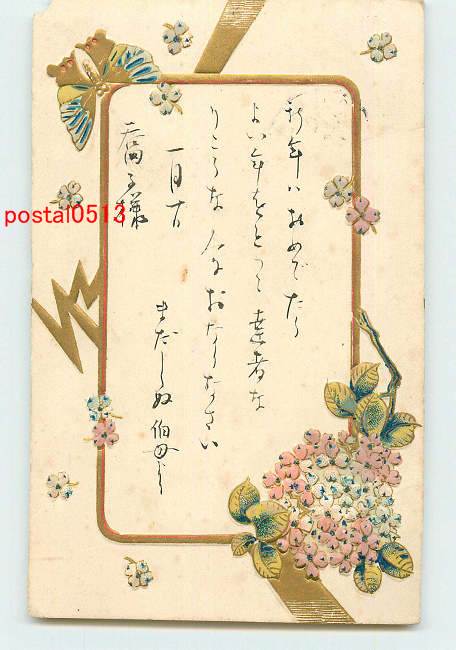 新年はおめでたう
よい年をとつて達者な
りこうな人におなりなさい
一月一日
まだしらぬ伯母より
様
postal0513